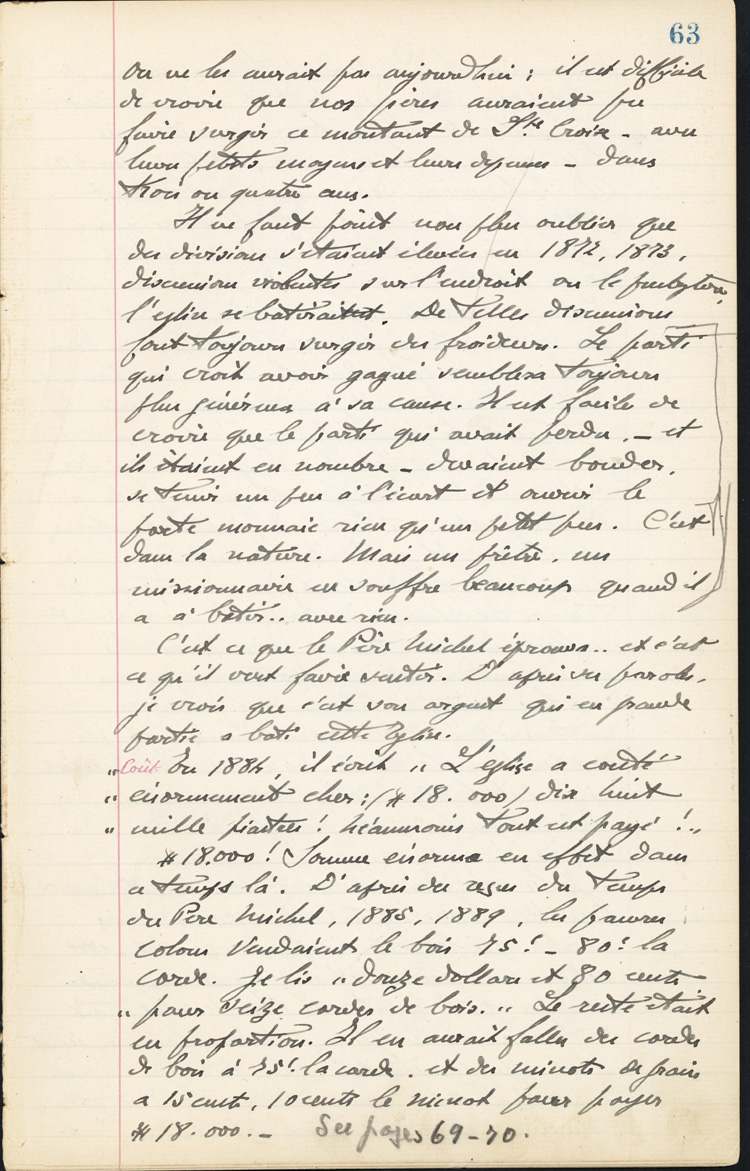 63
On ne les aurait pas aujourd'hui ; il est difficile
de croire que nos pères auraient pu
faire surgir ce montant de Ste Croix - avec
leurs petits moyens et leurs dépenses - dans
trois ou quatre ans.
Il ne faut point non plus oublier que
des divisions s'étaient élevées en 1872, 1873,
discussions violentes sur l'endroit où le presbytère,
l'église se bâtirait. De telles discussions
font toujours surgir des froideurs. Le parti
qui croit avoir gagné semblera toujours
plus généreux à sa cause. Il est facile de
croire que le parti qui avait perdu, - et
ils étaient en nombre - devaient bouder,
se tenir un peu à l'écart et ouvrir le
porte monnaie rien qu'un petit peu. C'est
dans la nature. Mais un prêtre, un
missionnaire en souffre beaucoup quand il
a à bâtir.. avec rien.
C'est ce que le Père Michel éprouva.. et c'est
ce qu'il veut faire sentir. D'après ses paroles,
je crois que c'est son argent qui en grande
partie a bâti cette Eglise.
Coût En 1884, il écrit " L'église a couté
" énormement cher : (# 18.000) dix huit
" mille piastres ! Néanmoins tout est payé ! "
# 18.000 ! Somme énorme en effet dans
ce temps là. D'après des reçus du temps
du Père Michel, 1885, 1889, les pauvres
colons vendaient le bois 75¢ - 80¢ la
corde. Je lis " douze dollars et 80 cents
" pour seize cordes de bois. " Le reste était
en proportion. Il en aurait fallu des cordes
de bois à 75¢ la corde, et des minots de grain
a 15 cents, 10 cents le minot pour payer
# 18.000. -
See pages 69-70.